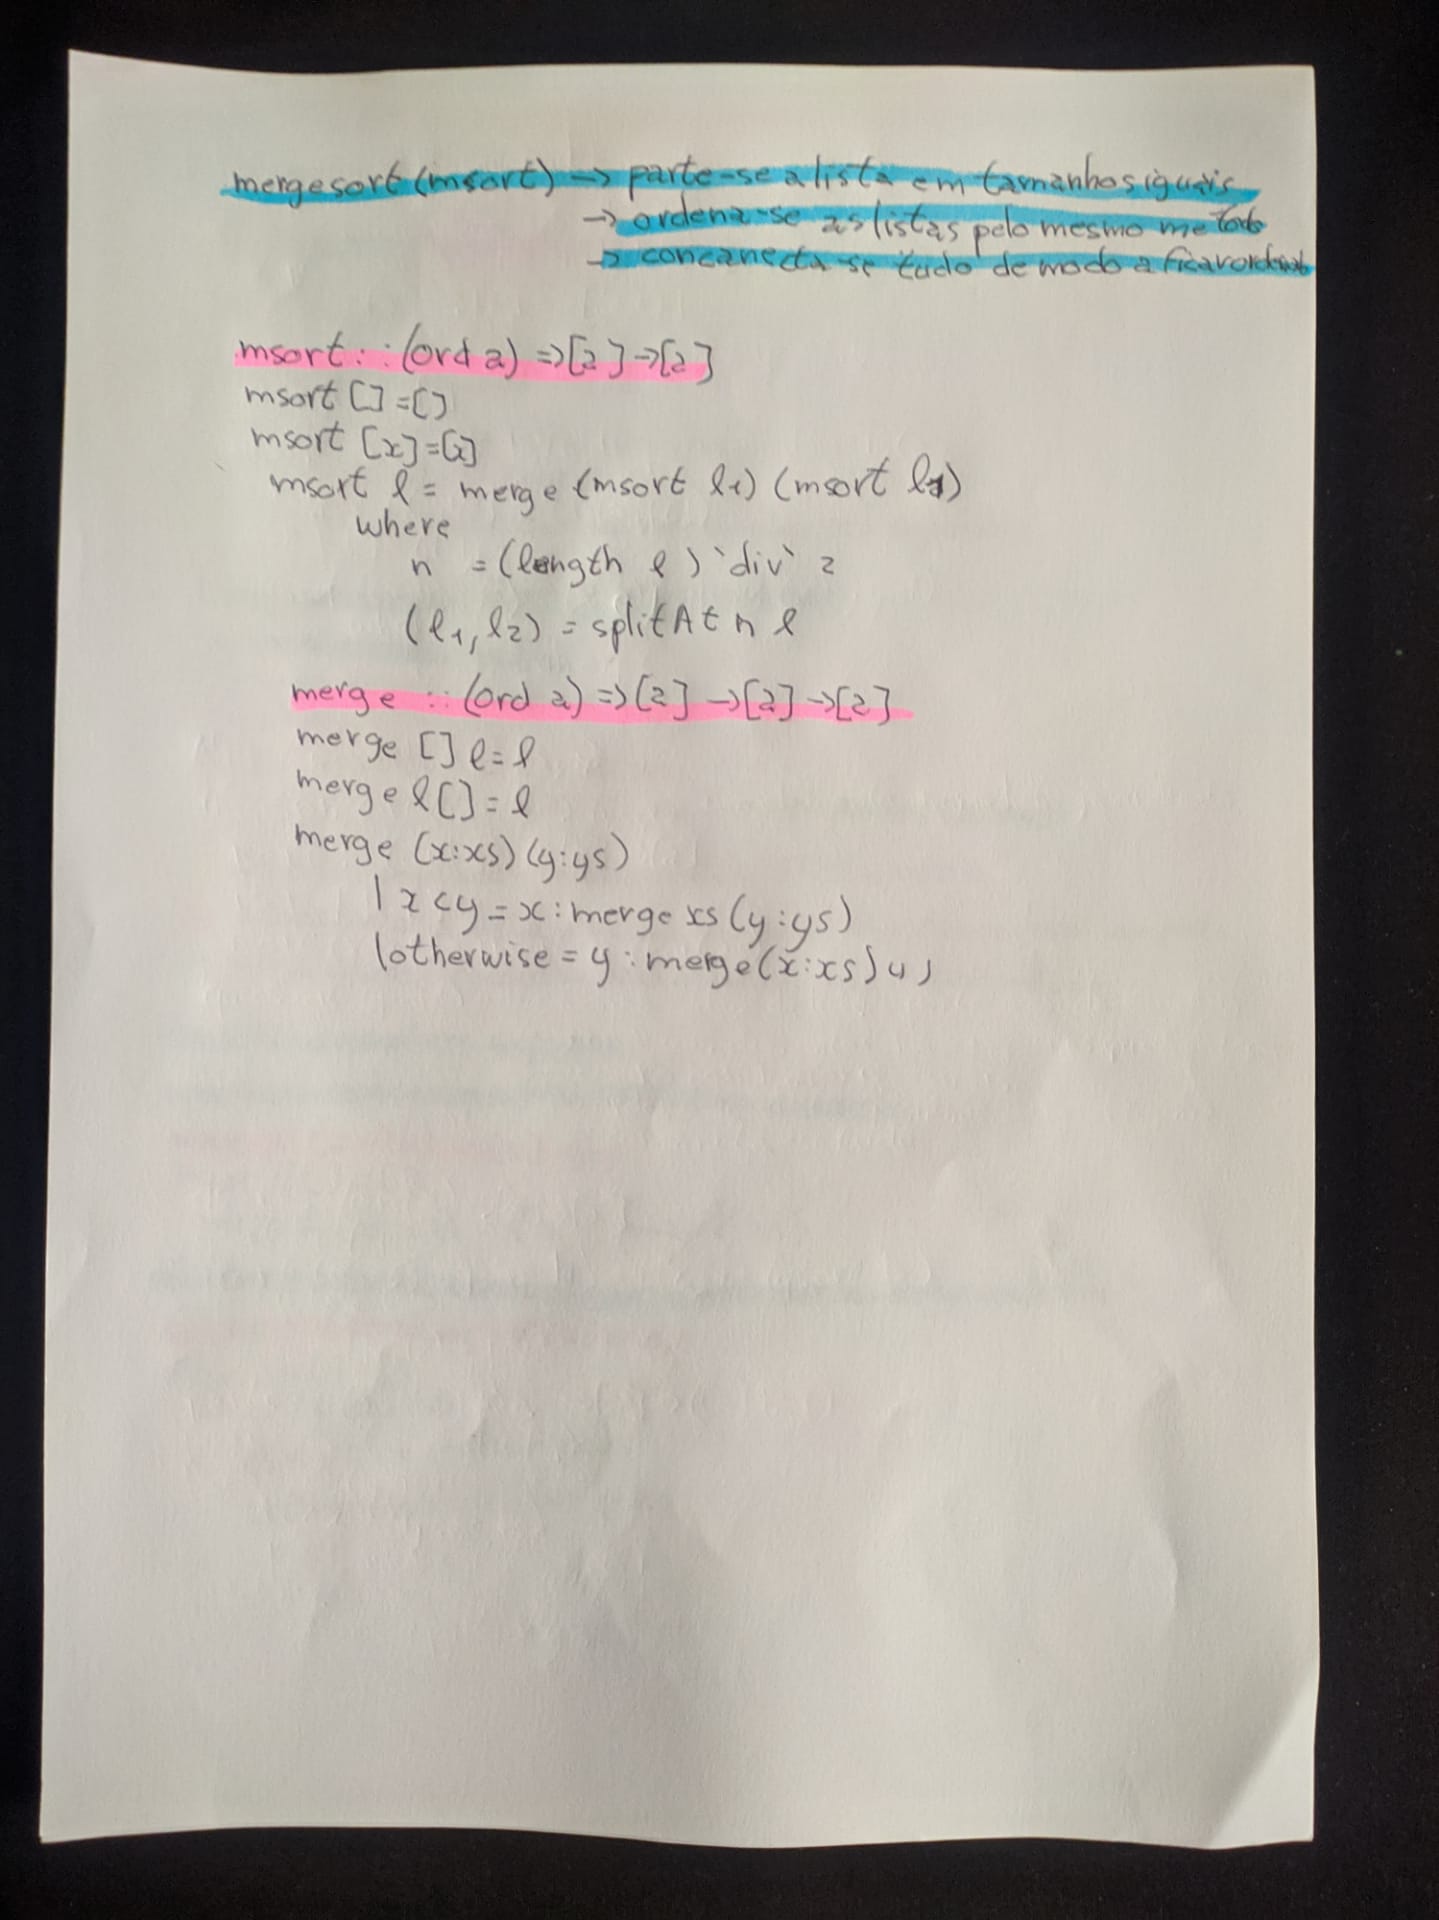 mergesort (msort) → parte-se a lista em tamanhos iguais
→ ordena-se as listas pelo mesmo metodo
→ concanecta-se tudo de modo a ficar ordenado
msort :: (ord a) => [a] -> [a]
msort [] = []
msort [x] = [x]
msort l = merge (msort l1) (msort l2)
where
n = (length l) `div` 2
(l1, l2) = splitAt n l
merge :: (ord a) => [a] -> [a] -> [a]
merge [] l = l
merge l [] = l
merge (x:xs) (y:ys)
| x < y = x : merge xs (y:ys)
| otherwise = y : merge (x:xs) ys